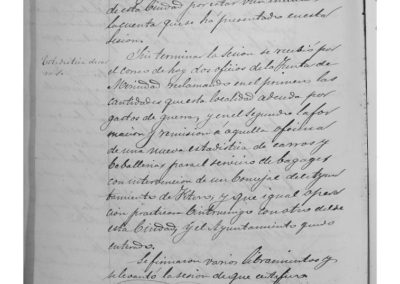 de esta Ciudad por estar
la cuenta que se ha presentado en esta
sesion.
Sin terminar la sesion se recibió por
el correo de hoy dos oficios de la Junta de
Merindad reclamando en el primero las
cantidades que esta localidad adeuda por
gastos de guerra, y en el segundo la for
macion y remision a aquella oficina
de una nueva estadistica de carros y
caballerias para el servicio de bagages
con intervencion de un Concejal del Ayun
tamiento de Fitero, y que igual opera
cion practicara Cintruenigo con otro de
esta Ciudad, y el Ayuntamiento quedó
enterado.
Se firmaron varios libramientos y
se levantó la sesion de que certifico.
Estadistica de car